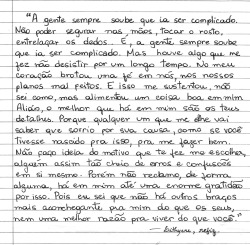 "A gente sempre soube que ia ser complicado.
Não poder segurar nas mãos, tocar o rosto,
entrelaçar os dedos. E, a gente sempre soube
que ia ser complicado. Mas houve algo que me
fez não desistir por um longo tempo. No meu
coração brotou uma fé em nós, nos nossos
planos mal feitos. E isso me sustentou, não
sei como, mas alimentou um coisa boa em mim.
Aliás, o melhor que há em mim são os teus
detalhes. Porque qualquer um que me olhe vai
saber que sorrio por sua causa, como se você
tivesse nascido pra isso, pra me fazer bem.
Não faço ideia do motivo que te fez me escolher,
alguém assim tão cheio de erros e confusões
em si mesmo. Porém não reclamo, de forma
alguma, há em mim até uma enorme gratidão
por isso. Pois eu sei que não há outros braços
mais aconchegante pra mim do que os seus,
nem uma melhor razão pra viver do que você."